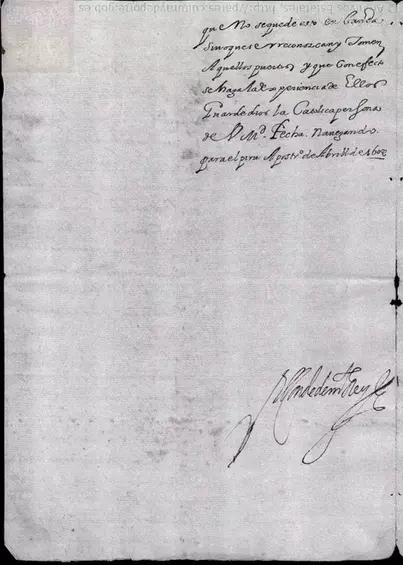 que No se quede esto en Vanda
sino que se reconozcan y tomen
Aquellos puertos y que con effecto
se haga la experiencia de Ellos
Guarde dios la Catolica persona
de V. Mᵈ. Fecha. Nauegando
para el piru A postrº. de Abrill de 1604
El Conde de mᵗᵉ Rey